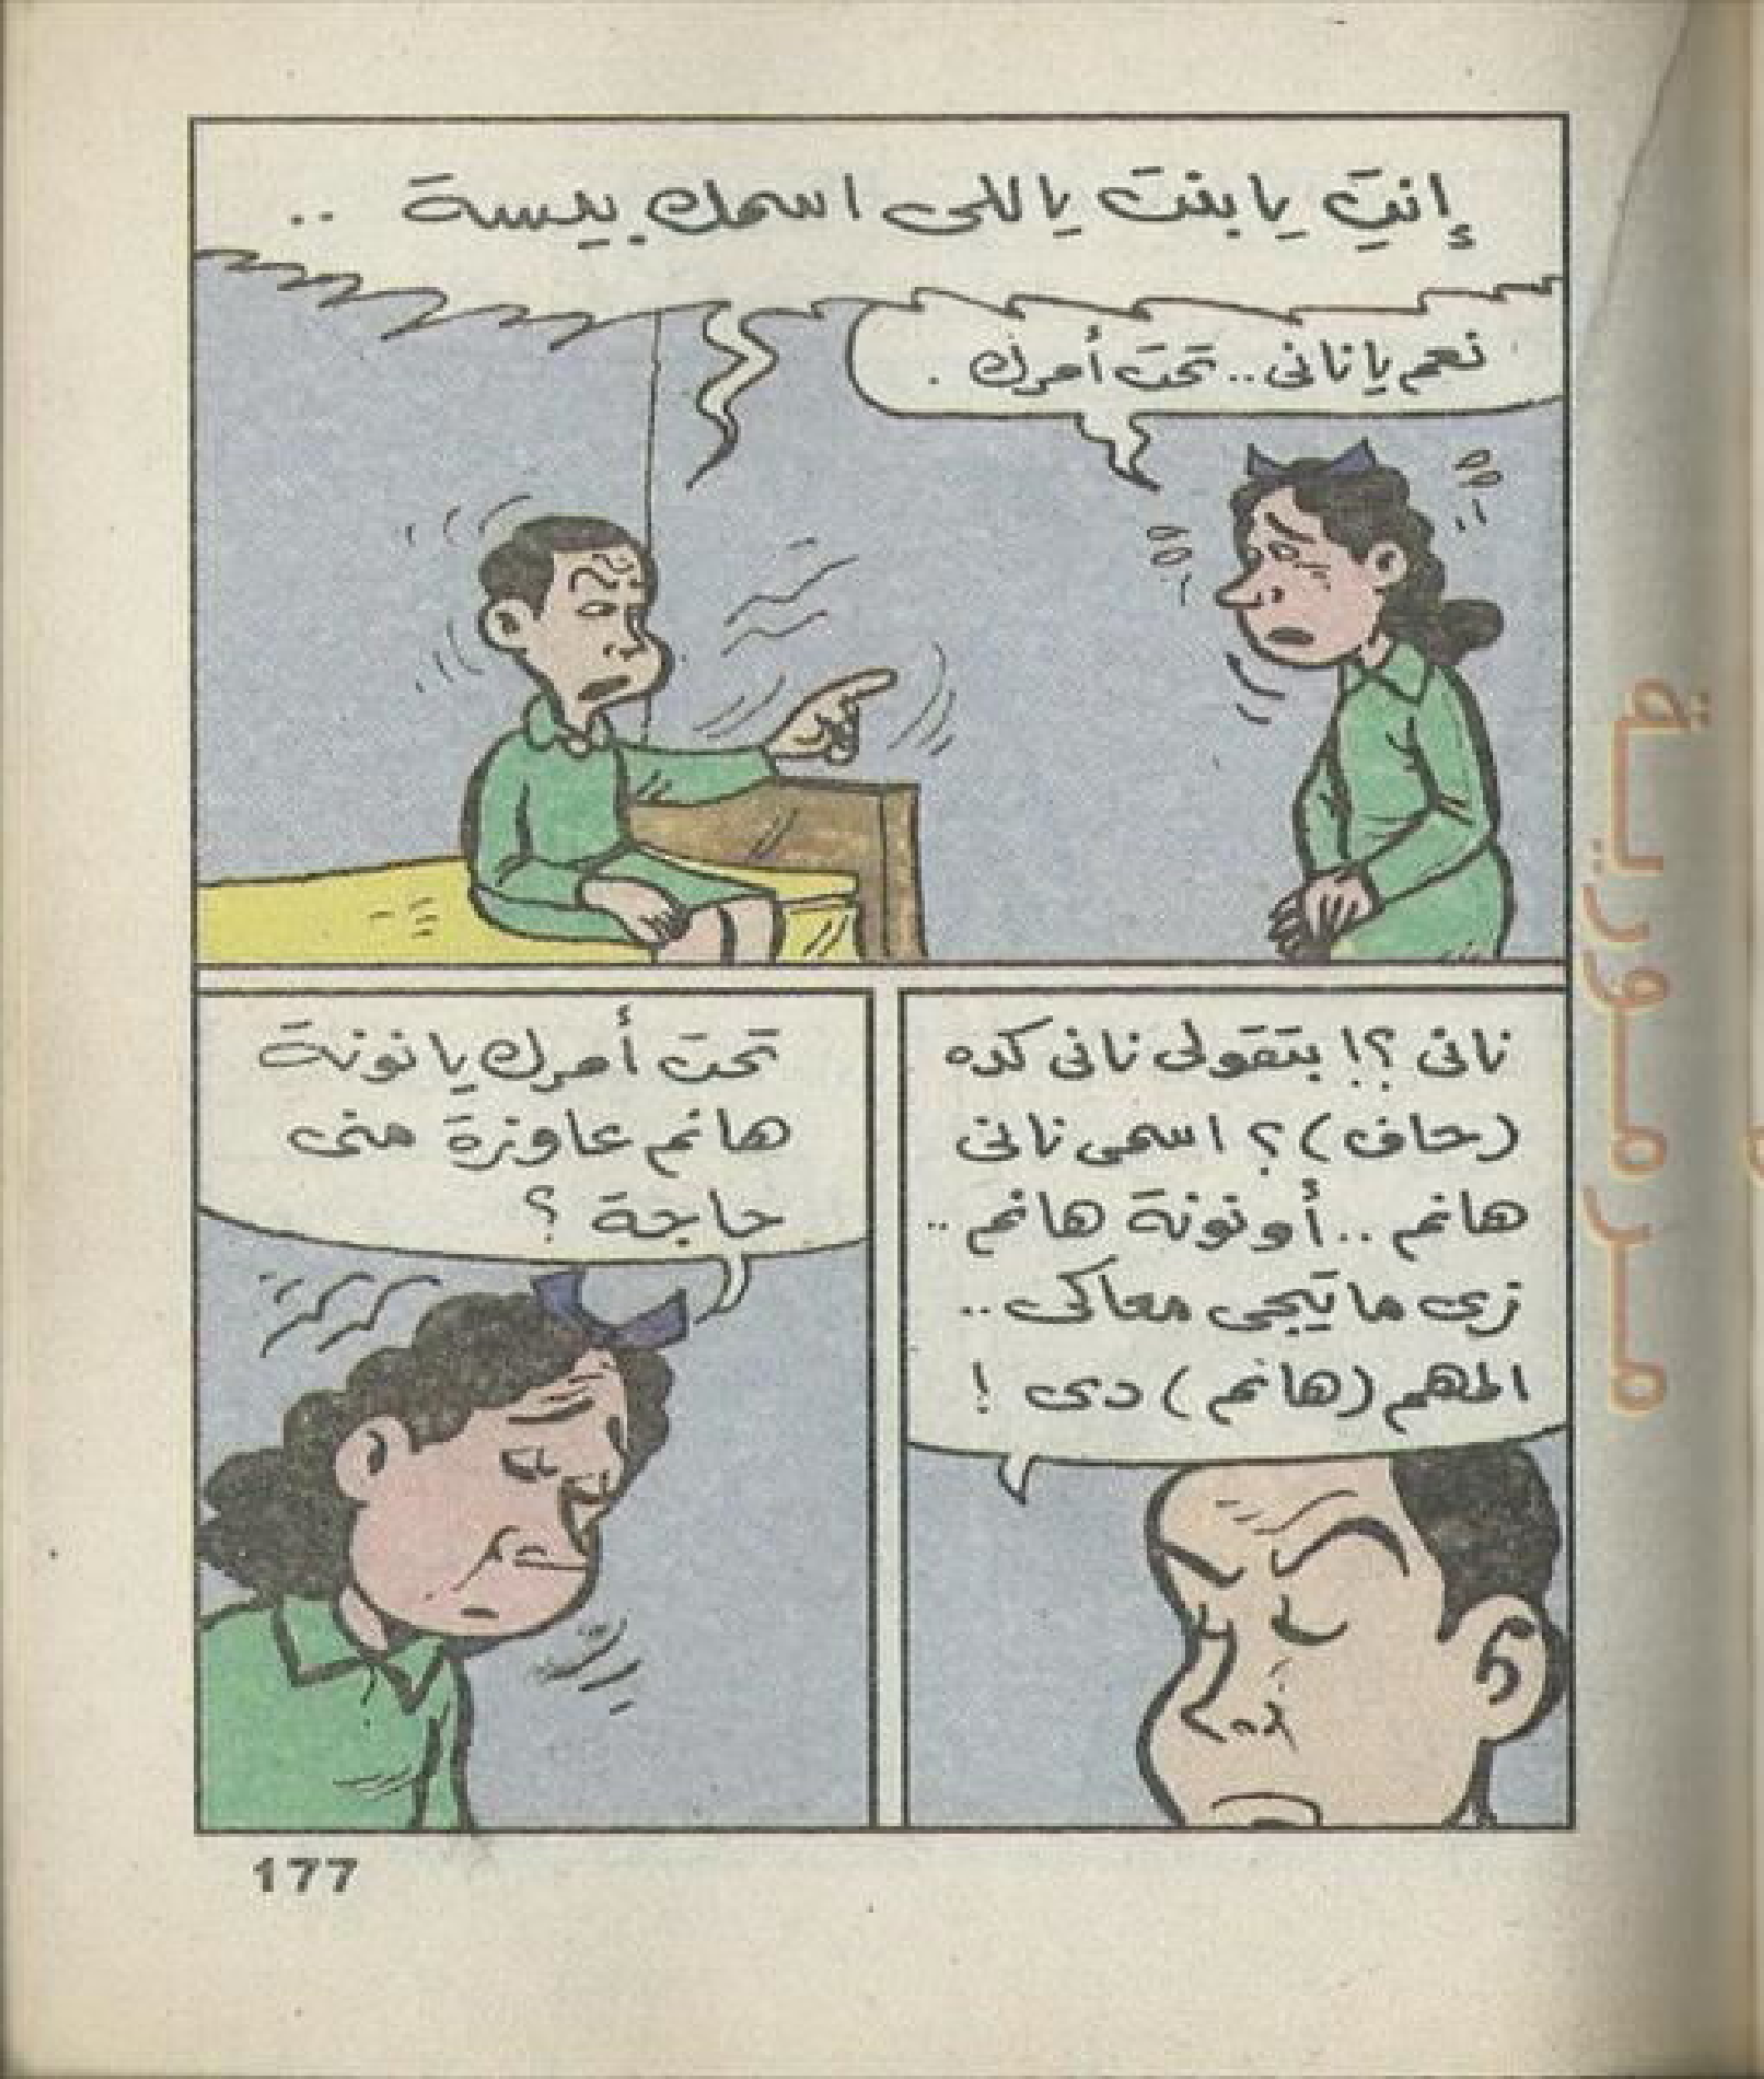 إنتِ يا بنت ياللى اسمك بيسة ..
نعم يا نانى.. تحت أمرك .
نانى ؟! بتقولى نانى كده
(حاف) ؟ اسمى نانى
هانم .. أو نونة هانم ..
زى ما تيجى معاكى ..
المهم (هانم) دى !
تحت أمرك يا نونة
هانم عاوزة منى
حاجة ؟
177
مرمورية